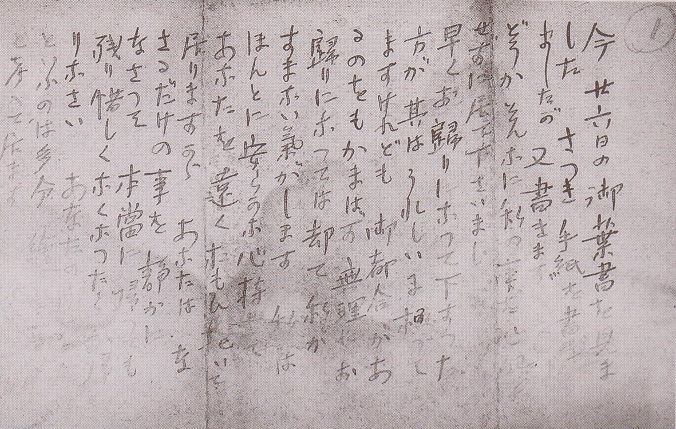 1
今 廿六日の御葉書を見ま
した さつき手紙を書き
ましたが 又書きます
どうか そんなに私の
せずに居て下さいまし
早くお歸りになつて下すつた
方が 其はうれしいま
ますけれども 御都合がお
るのをもかまはず 無理にお
歸りになつては却て私が
すまない氣がします 私は
ほんとに安らかな心持
あなたを遠くおもひ
居りますから あなたは な
さるだけの事を 靜かに
なさつて 本當に
殘り惜しくなくなつたら
りなさい あなた
といふのは多分
と考へて居ます